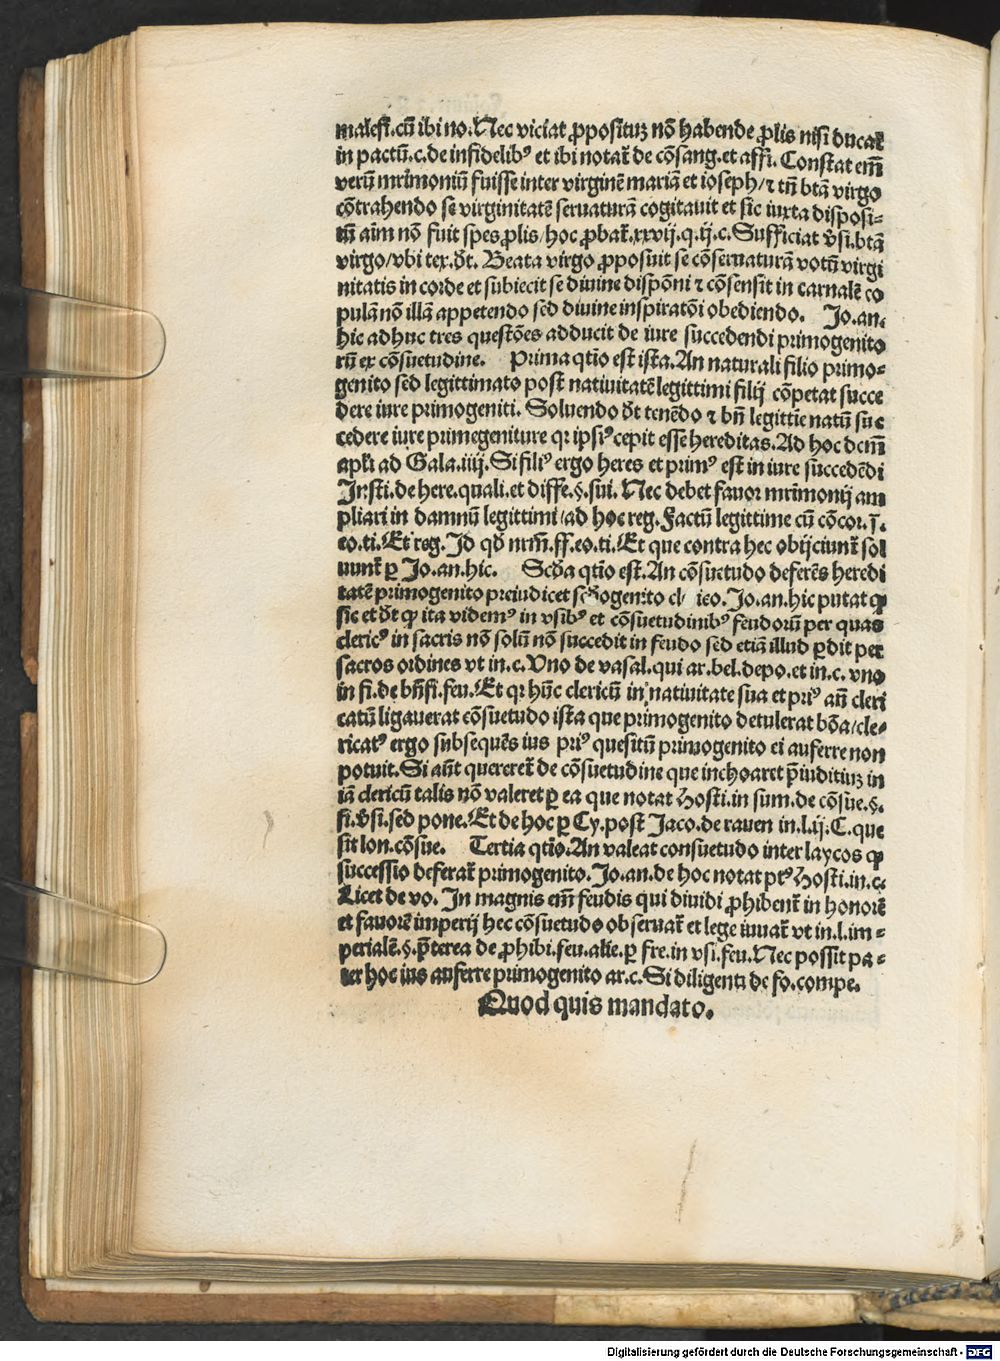 malefi.cū ibi no. Nec viciat ꝓpositūꝫ nō habende ꝓlis nisi ducat̄
in pactū.c.de infidelibꝰ et ibi notat̄ de cōsang.et affi. Constat em̄
verū mr̄imoniū fuisse inter virginē mariā et ioseph/⁊ tn̄ btā virgo
cōtrahendo se virginitatē seruaturā cogitauit et sic iuxta disposi⸗
tū aim nō fuit spes ꝓlis/hoc ꝓbat̄.xxvij.q.ij.c. Sufficiat v̄si.btā
virgo/vbi tex.d̄t. Beata virgo ꝓposuit se cōseruaturā votū virgi
nitatis in corde et subiecit se diuine dispōni ⁊ cōsensit in carnalē co
pulā nō illā appetendo sed diuine inspiratōi obediendo. Jo.an.
hic adhuc tres questōes adducit de iure succedendi primogenito
rū ex cōsuetudine. Prima qtio est ista. An naturali filio primo⸗
genito sed legittimato post natiuitatē legittimi filij cōpetat succe
dere iure primogeniti. Soluendo d̄t tenēdo ⁊ bn̄ legittie natū suc
cedere iure primegeniture qꝛ ipsiꝰ cepit esse hereditas. Ad hoc dcm̄
apli ad Gala.iiij. Si filiꝰ ergo heres et primꝰ est in iure succedēdi
Insti.de here.quali.et diffe.§.sui. Nec debet fauor mr̄imonij am
pliari in damnū legittimi/ad hoc reg. Factū legittime cū cōcor.ī.
eo.ti. Et reg. Id qd̄ nrm̄.ff.eo.ti. Et que contra hec obijciunt̄ sol
uunt̄ ꝑ Jo.an.hic. Scd̄a qtio est. An cōsuetudo deferēs heredi
tatē primogenito preiudicet Jo.an.hic putat ꝙ
sic et d̄t ꝙ ita videmꝰ in vsibꝰ et cōsuetudinibꝰ feudorū per quas
clericꝰ in sacris nō solū nō succedit in feudo sed etiā illud ꝑdit per
sacros ordines vt in.c. Vno de vasal.qui ar.bel.depo.et in.c.vno
in fi.de bn̄fi.feu. Et qꝛ hūc clericū in natiuitate sua et priꝰ an̄ cleri
catū ligauerat cōsuetudo ista que primogenito detulerat bōa/cle⸗
ricatꝰ ergo subsequēs ius priꝰ quesitū primogenito ei auferre non
potuit. Si aūt quereret̄ de cōsuetudine que inchoaret p̄iuditiuꝫ in
iā clericū talis nō valeret ꝑ ea que notat Hosti.in sum.de cōsue.§.
fi.v̄si.sed pone. Et de hoc ꝑ Cy.post Jaco.de rauen in.l.ij.C.que
sit lon.cōsue. Tertia qtio. An valeat consuetudo inter laycos ꝙ
successio deferat̄ primogenito. Jo.an.de hoc notat ptꝰ Hosti.in.c.
Licet de vo. In magnis em̄ feudis qui diuidi ꝓhibent̄ in honorē
et fauorē imperij hec cōsuetudo obseruat̄ et lege iuuat̄ vt in.l.im⸗
perialē.§.p̄terea de ꝓhibi.feu.alie.ꝑ fre.in vsi.feu. Nec possit pa⸗
ter hoc ius auferre primogenito ar.c. Si diligenti de fo.compe.
Quod quis mandato.
Digitalisierung gefördert durch die Deutsche Forschungsgemeinschaft - DFG